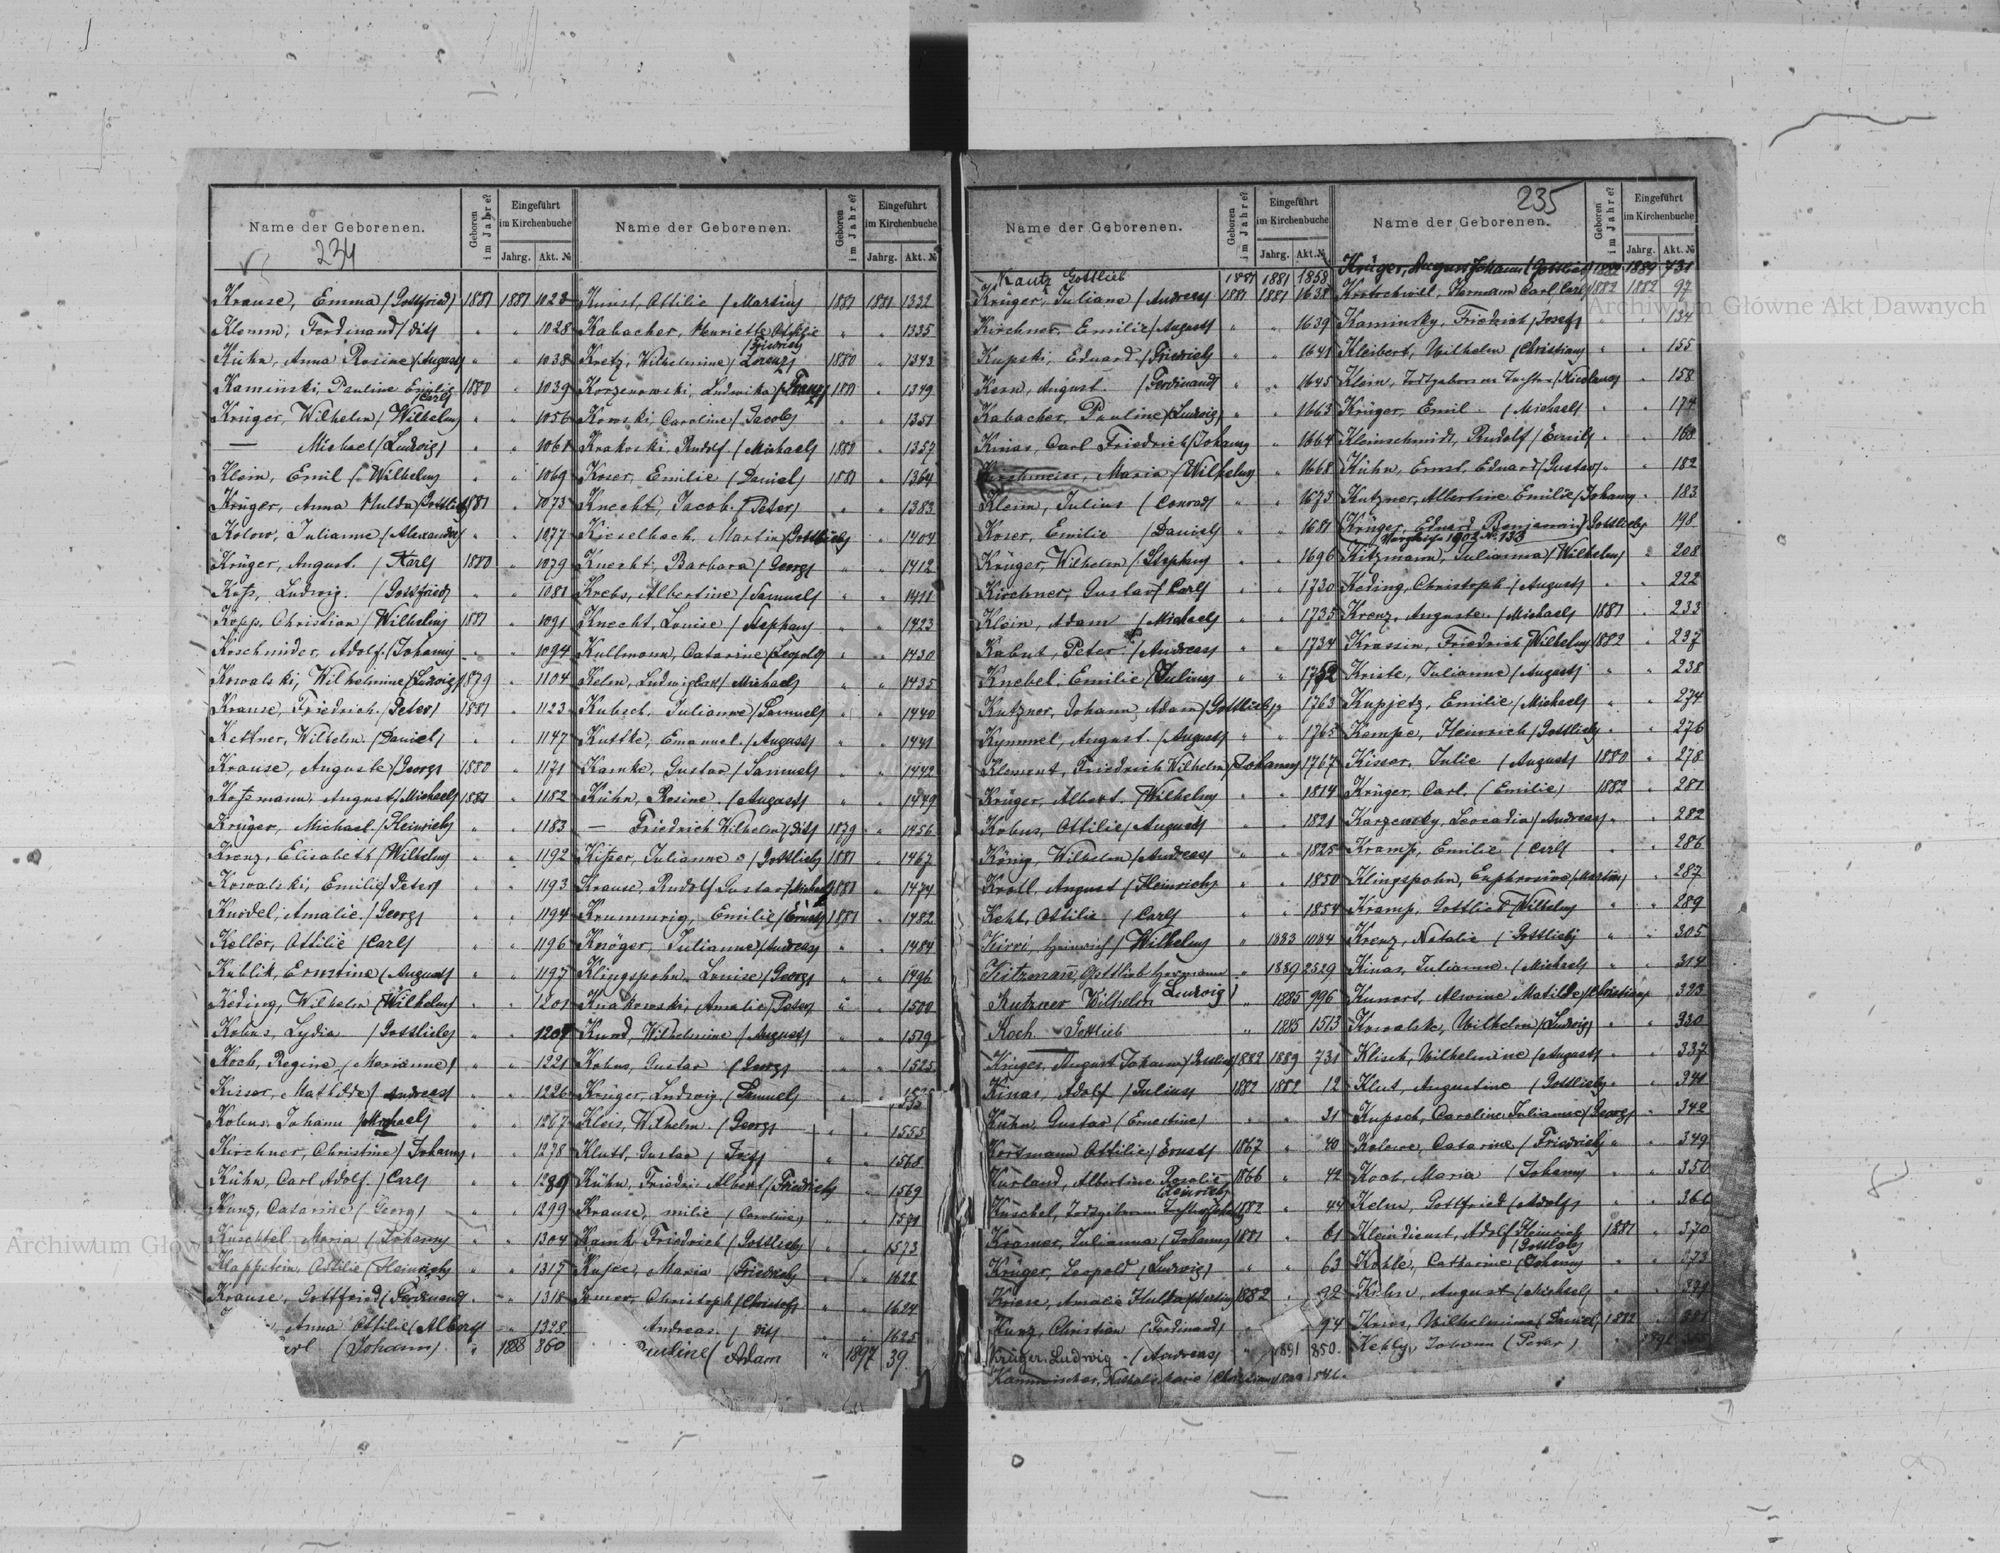 Name der Geborenen.
Geboren im Jahre?
Eingeführt im Kirchenbuche
Jahrg. Akt. №
234
Krause, Emma (Gottfried) 1881 1881 1023
Klemm, Ferdinand (dito) " " 1028
Kühn, Anna Rosine (August) " " 1038
Kaminski, Pauline Emilie (Carl) 1880 " 1039
Krüger, Wilhelm (Wilhelm) " " 1056
— Michael (Ludwig) " " 1061
Klein, Emil (Wilhelm) " " 1069
Krüger, Anna Hulda (Gottlieb) 1881 " 1073
Kolow, Julianne (Alexander) " " 1077
Krüger, August (Karl) 1880 " 1079
Ludwig (Gottfried) " " 1081
Kopp, Christian (Wilhelm) 1881 " 1091
Koschnider, Adolf (Johann) " " 1094
Kowalski, Wilhelmine (Ludwig) 1879 " 1104
Krause, Friedrich (Peter) 1881 " 1123
Kettner, Wilhelm (Daniel) " " 1147
Krause, Auguste (Georg) 1880 " 1171
August (Michael) 1881 " 1182
Krüger, Michael (Heinrich) " " 1183
Krenz, Elisabeth (Wilhelm) " " 1192
Kowalski, Emilie (Peter) " " 1193
Knodel, Amalie (Georg) " " 1194
Keller, Ottilie (Carl) " " 1196
Kublik, Ernstine (August) " " 1197
Keding, Wilhelm (Wilhelm) " " 1201
Kobus, Lydia (Gottlieb) " " 1207
Koch, Regine (Marianne) " " 1221
Kisser, Mathilde (Andreas) " " 1226
Kobus, Johann (Michael) " " 1267
Kirchner, Christine (Johann) " " 1278
Kühn, Carl Adolf (Carl) " " 1289
Kunz, Catarine (Georg) " " 1299
Maria (Johann) " " 1304
Ottilie (Heinrich) " " 1317
Krause, Gottfried (Ferdinand) " " 1318
Anna Ottilie (Albert) " " 1328
(Johann) " 1888 860
Name der Geborenen.
Geboren im Jahre?
Eingeführt im Kirchenbuche
Jahrg. Akt. №
Kunst, Ottilie (Martin) 1881 1881 1332
Kabacher, Henriette Ottilie (Friedrich) " " 1335
Kretz, Wilhelmine (Lorenz) 1880 " 1343
Korzenowski, Ludwika (Franz) 1881 " 1349
Kowski, Caroline (Jacob) " " 1351
Krakoski, Rudolf (Michael) 1880 " 1357
Koser, Emilie (Daniel) 1881 " 1364
Knecht, Jacob (Peter) " " 1383
Kieselbach, Martin (Gottlieb) " " 1404
Knecht, Barbara (Georg) " " 1412
Krebs, Albertine (Samuel) " " 1411
Knecht, Louise (Stephan) " " 1423
Kullmann, Catarine (Leopold) " " 1430
Kelm, Ludwig Carl (Michael) " " 1435
Kubsch, Julianne (Samuel) " " 1440
Kuttke, Emanuel (August) " " 1441
Kamke, Gustav (Samuel) " " 1442
Kühn, Rosine (August) " " 1449
— Friedrich Wilhelm (dito) 1879 " 1456
Kitzer, Julianne (Gottlieb) 1881 " 1467
Krause, Rudolf Gustav (Michael) 1881 " 1474
Krummrig, Emilie (Ernst) 1881 " 1482
Kröger, Julianne (Andreas) " " 1484
Klingspohn, Louise (Georg) " " 1496
Krakowski, Amalie (Peter) " " 1500
Kund, Wilhelmine (August) " " 1519
Kobus, Gustav (Georg) " " 1525
Krüger, Ludwig (Samuel) " " 1535
Kleis, Wilhelm (Georg) " " 1555
Klutt, Gustav " " 1568
Kühn, Friedri Albert (Friedrich) " " 1569
Krause, milie (Caroline) " " 1571
Kamk, Friedrich (Gottlieb) " " 1573
Maria (Friedrich) " " 1622
Christoph (Christof) " " 1624
Andreas (dito) " " 1625
(Adam " 1897 39
Name der Geborenen.
Geboren im Jahre?
Eingeführt im Kirchenbuche
Jahrg. Akt. №
Kautz Gottlieb 1881 1881 1858
Krüger, Juliane (Andreas) 1881 1881 1638
Kirchner, Emilie (August) " " 1639
Kupski, Eduard (Friedrich) " " 1641
Kern, August (Ferdinand) " " 1645
Kabacher, Pauline (Ludwig) " " 1663
Kinas, Carl Friedrich (Johann) " 1664
Kirschmeier, Maria (Wilhelm) " 1668
Klein, Julius (Conrad) " " 1673
Koser, Emilie (Daniel) " " 1681
Krüger, Wilhelm (Stephan) " " 1696
Kirchner, Gustav (Carl) " " 1730
Klein, Adam (Michael) " " 1735
Kabut, Peter (Andreas) " " 1734
Knebel, Emilie (Julius) " " 1752
Kutzner, Johann Adam (Gottlieb) " 1763
Kymmel, August (August) " " 1765
Klement, Friedrich Wilhelm (Johann) 1767
Krüger, Albert (Wilhelm) " " 1814
Kobus, Ottilie (August) " " 1821
König, Wilhelm (Andreas) " " 1825
Kroll, August (Heinrich) " " 1850
Kehl, Ottilie (Carl) " " 1854
Heinrich (Wilhelm) " 1883 1084
Kitzmann, Gottlieb Hermann " 1889 2529
Kutzner Wilhelm Ludwig) " 1885 996
Koch Gottlieb " 1885 1513
Krüger, August Johann (Gottlieb) 1882 1889 731
Kinas, Adolf (Julius) 1882 1882 12
Kühn, Gustav (Ernestine) " " 31
Korstmann Ottilie (Ernst) 1867 " 40
Kurland, Albertine Rosalie (Heinrich) 1866 " 42
Kuschel, 1882 " 44
Kramer, Julianna (Johann) 1881 " 61
Krüger, Leopold (Ludwig) " " 63
Kriese, Amalie Hulda (Martin) 1882 " 92
Kunz, Christian (Ferdinand) " 94
Krüger, Ludwig (Andreas) " 1891 850
Name der Geborenen.
235
Geboren im Jahre?
Eingeführt im Kirchenbuche
Jahrg. Akt. №
Krüger, August Johann (Gottlieb) 1882 1889 731
Kratochwill, Hermann Carl (Carl) 1882 1882 97
Kaminsky, Friedrich (Josef) " " 134
Kleibert, Wilhelm (Christian) " " 155
Klein, Todtgeborene Tochter (Nicolaus) " 158
Krüger, Emil (Michael) " " 174
Kleinschmidt, Rudolf (Emil) " " 168
Kühn, Ernst Eduard (Gustav) " " 182
Kutzner, Albertine Emilie (Johann) " 183
(Krüger, Eduard Benjamin) Gottlieb 198
1902 N. 133
Kitzmann, Julianna (Wilhelm) " 208
Keding, Christoph (August) " " 222
Krenz, Auguste (Michael) 1881 " 233
Krassin, Friedrich (Wilhelm) 1882 " 237
Kriste, Julianne (August) " " 238
Kupjetz, Emilie (Michael) " " 274
Kempe, Heinrich (Gottlieb) " " 276
Kisser, Julie (August) 1880 " 278
Krüger, Carl (Emilie) 1882 " 281
Karzewsky, Leocadia (Andreas) " 282
Kramp, Emilie (Carl) " " 286
Klingspohn, Euphrosine (Martin) " 287
Kramp, Gottlieb (Wilhelm) " " 289
Krenz, Natalie (Gottlieb) " " 305
Kinas, Julianne (Michael) " " 314
Kunert, Alwine Matilde (Christian) " 323
Kowalsk, Wilhelm (Ludwig) " " 330
Klisch, Wilhelmine (August) " " 337
Klut, Augustine (Gottlieb) " " 341
Kupsch, Caroline Julianne (Georg) " 342
Kolewe, Catarine (Friedrich) " " 349
Koch, Maria (Johann) " " 350
Kelm, Gottfried (Adolf) " " 366
Kleindienst, Adolf (Heinrich Gottlob) 1881 " 370
Kohle, Catharine (Johann) " " 373
August (Michael) " "
Wilhelmine (Daniel) 1882 "
Johann (Peter) " 1892
Archiwum Główne Akt Dawnych
Archiwum Główne Akt Dawnych